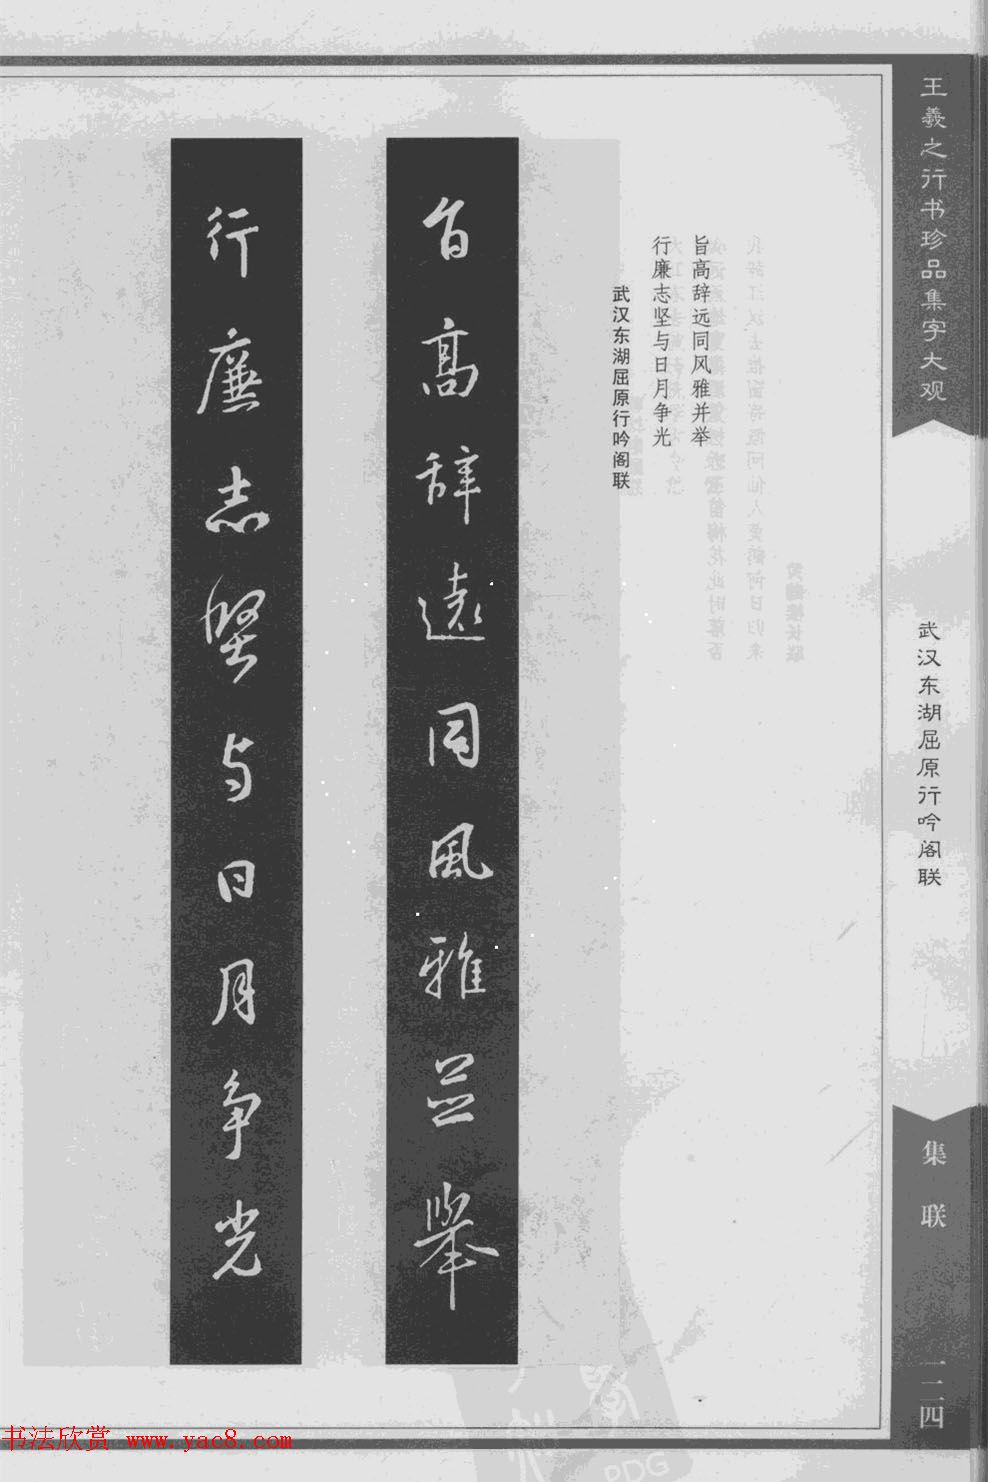 王羲之行书珍品集字大观
武汉东湖屈原行吟阁联
集联
一二四
旨高辞远同风雅并举
行廉志坚与日月争光
武汉东湖屈原行吟阁联
旨高辞遠同風雅並舉
行廉志堅与日月争光
书法欣赏 www.yac8.com
PDG